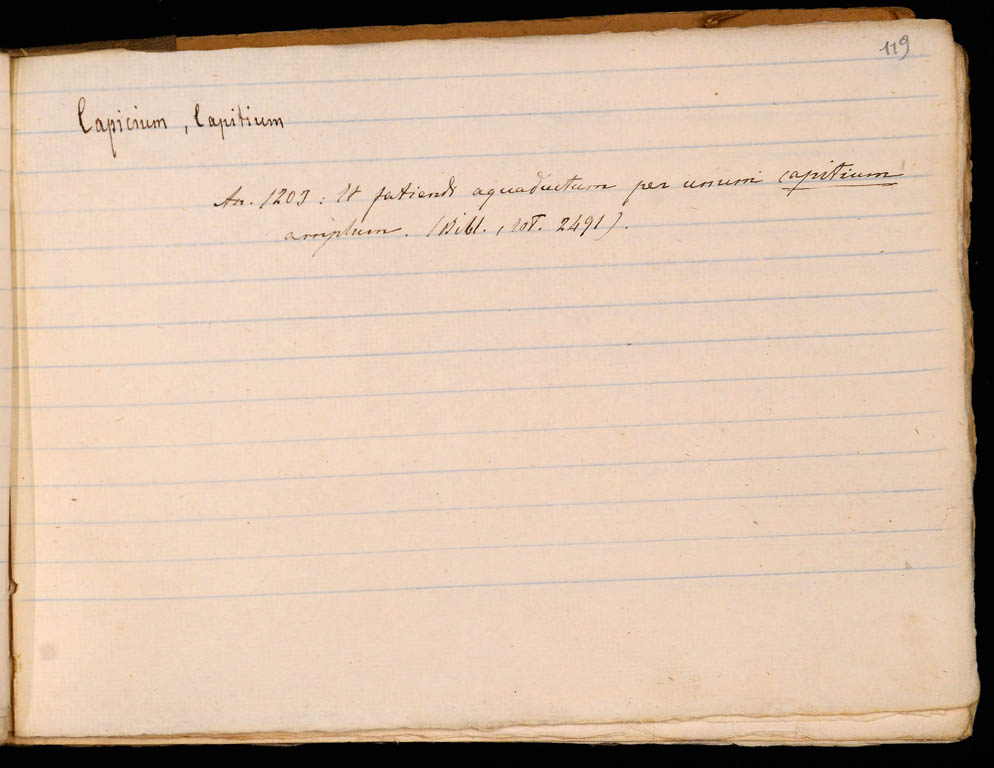 119
Capicium, Capitium
An. 1203 : Et patiendi aquaductum per unum capitium
amplum. (Bibl., 2491).